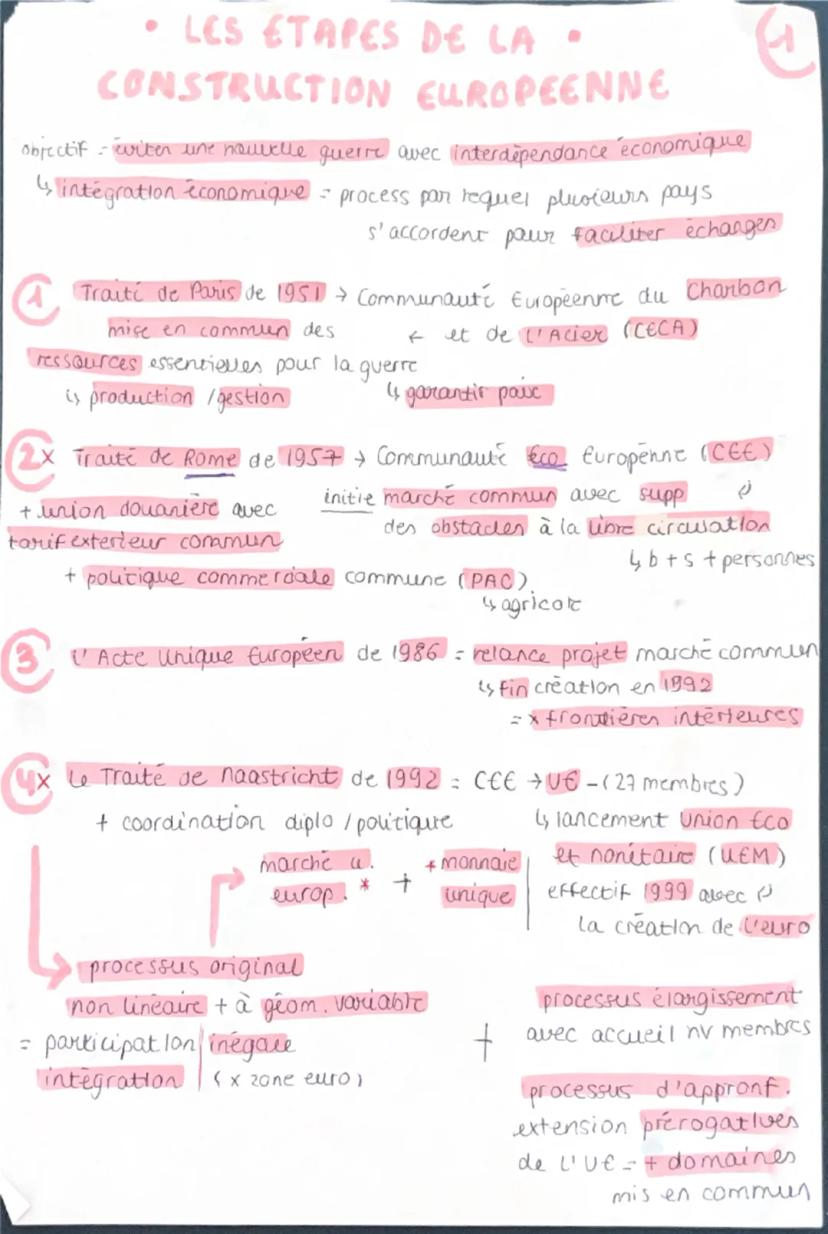 • LES ÉTAPES DE LA •
CONSTRUCTION EUROPEENNE
1
objectif = éviter une nouvelle guerre avec interdépendance économique
↳ intégration économique = process par lequel plusieurs pays
s'accordent pour faciliter échanges
1 Traité de Paris de 1951 → Communauté Européenne du Charbon
mise en commun des ← et de l'Acier (CECA)
ressources essentielles pour la guerre
↳ production / gestion ↳ garantir paix
2x Traité de Rome de 1957 → Communauté éco Européenne (CEE)
+ union douanière avec initie marché commun avec supp
tarif exterieur commun des obstacles à la libre circulation
↳ b + s + personnes
+ politique commerciale commune (PAC)
↳ agricole
3 L'Acte Unique Européen de 1986 = relance projet marché commun
↳ fin création en 1992
= x frontières intérieures
4x Le Traité de Maastricht de 1992 = CEE → UE - (27 membres)
+ coordination diplo / politique ↳ lancement Union Éco
et Monétaire (UEM)
effectif 1999 avec
la création de l'euro
marché u. europ. * + + monnaie unique
processus original
non linéaire + à géom. variable
= participation / inégale
intégration (x zone euro)
+ processus élargissement
avec accueil nv membres
processus d'appronf.
extension prérogatives
de l'UE = + domaines
mis en commun